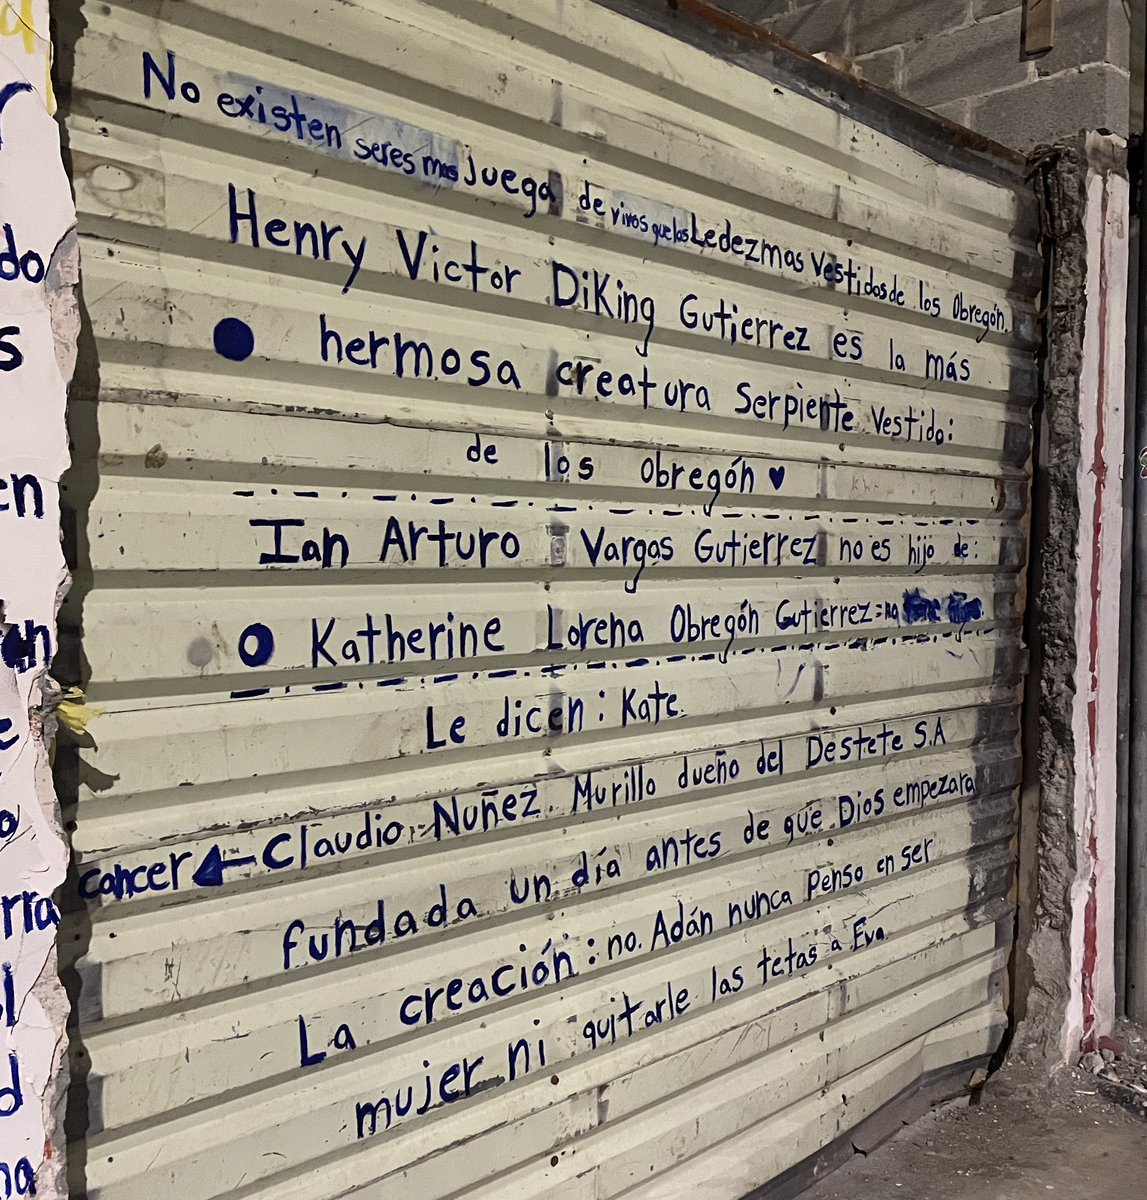 No existen seres mas juega de vivos que los Ledezmas Vestidos de los Obregón.
Henry Victor DiKing Gutierrez es la más
hermosa creatura Serpiente Vestido:
de los Obregón ♥
Ian Arturo Vargas Gutierrez no es hijo de:
Katherine Lorena Obregón Gutierrez = na
Le dicen: Kate.
Claudio Nuñez Murillo dueño del Destete S.A
cancer ←
fundada un día antes de que Dios empezara
La creación: no. Adán nunca penso en ser
mujer ni quitarle las tetas a Eva
do
s
en
an
e
o
rra
l
d
na